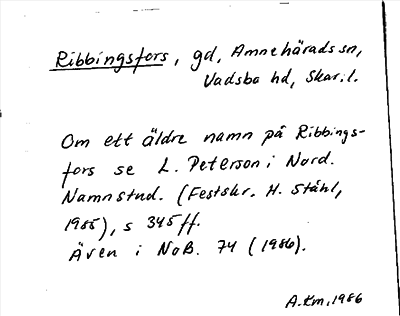 Ribbingsfors, gd, Amnehärads sn,
Vadsbo hd, Skar.l.
Om ett äldre namn på Ribbings-
fors se L. Peterson i Nord.
Namnstud. (Festskr. H. Ståhl,
1985), s 345 ff.
Även i NoB. 74 (1986).
A.Km, 1986